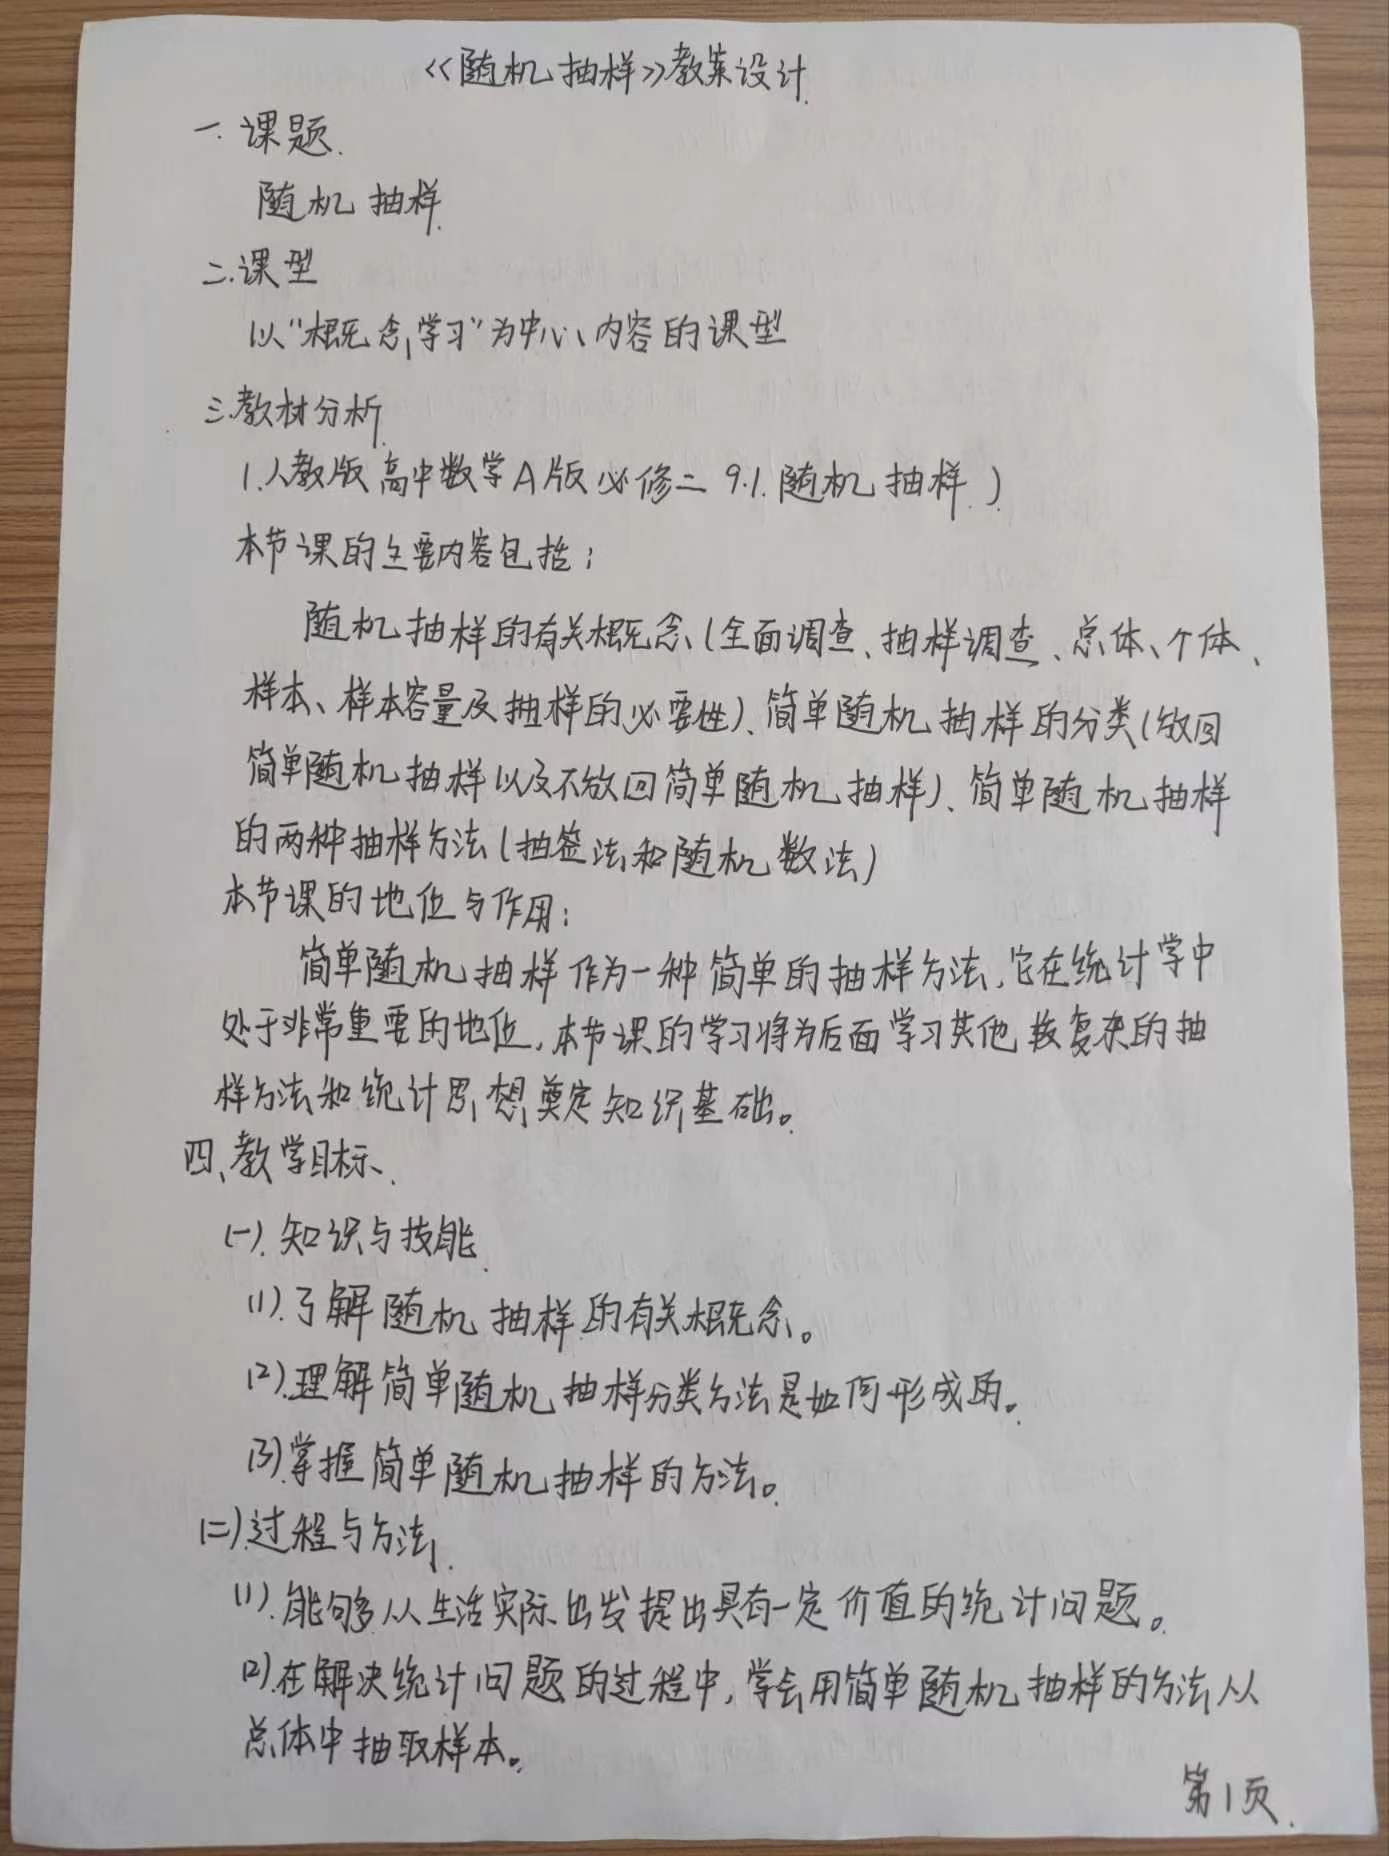 《随机抽样》教案设计
一.课题.
随机抽样.
二.课型
以“概念学习”为中心内容的课型
三.教材分析
1.人教版高中数学A版必修二 9.1.随机抽样)
本节课的主要内容包括:
随机抽样的有关概念(全面调查、抽样调查、总体、个体、
样本、样本容量及抽样的必要性)、简单随机抽样的分类(放回
简单随机抽样以及不放回简单随机抽样)、简单随机抽样
的两种抽样方法(抽签法和随机数法)
本节课的地位与作用:
简单随机抽样作为一种简单的抽样方法,它在统计学中
处于非常重要的地位,本节课的学习将为后面学习其他较复杂的抽
样方法和统计思想奠定知识基础。
四、教学目标、
(一).知识与技能.
(1).了解随机抽样的有关概念。
(2).理解简单随机抽样分类方法是如何形成的。
(3).掌握简单随机抽样的方法。
(二).过程与方法.
(1).能够从生活实际出发提出具有一定价值的统计问题。
(2).在解决统计问题的过程中,学会用简单随机抽样的方法从
总体中抽取样本。
第1页.